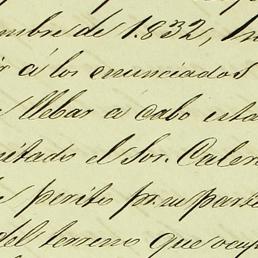 mbre de 1.832,
ir á los enunciados
llebar a cabo esta
nitado el Sor. Caler
perito pr. su parte
del terreno que ocup